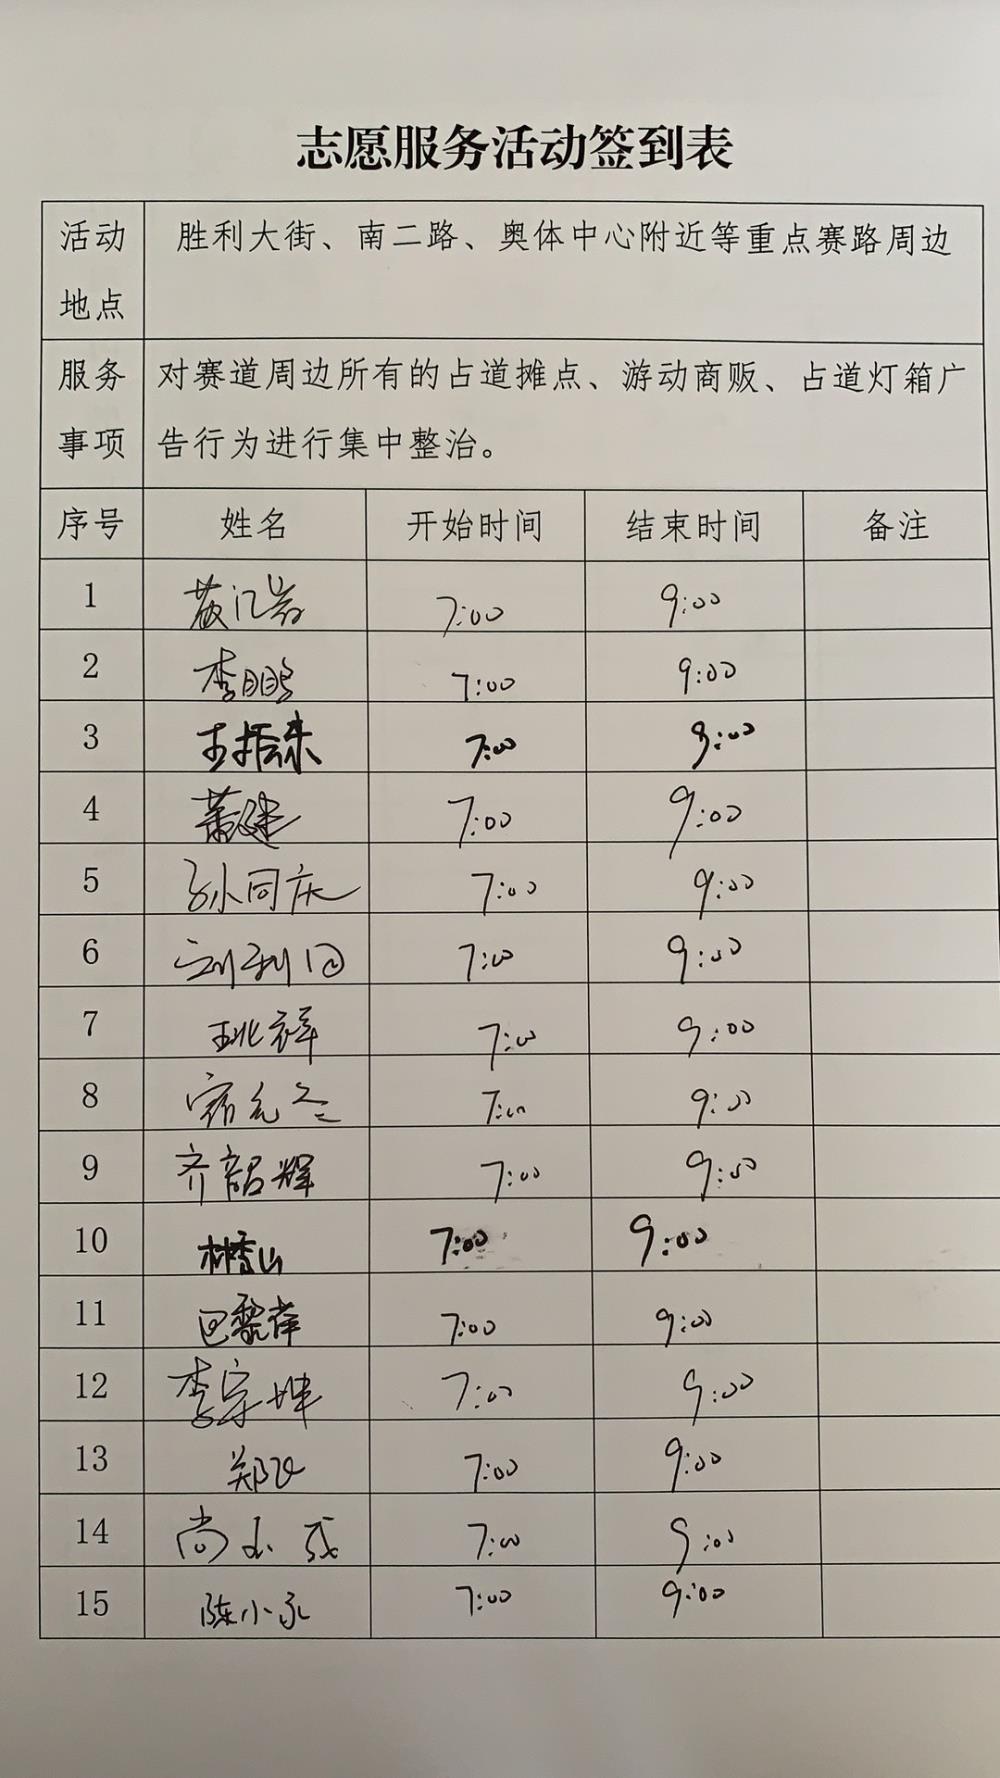 志愿服务活动签到表
活动地点 胜利大街、南二路、奥体中心附近等重点赛路周边
服务事项 对赛道周边所有的占道摊点、游动商贩、占道灯箱广
告行为进行集中整治。
序号 姓名 开始时间 结束时间 备注
1 7:00 9:00
2 李鹏 7:00 9:00
3 7:00 9:00
4 7:00 9:00
5 孙同庆 7:00 9:00
6 7:00 9:00
7 7:00 9:00
8 7:00 9:00
9 齐韶辉 7:00 9:00
10 7:00 9:00
11 7:00 9:00
12 李宗坤 7:00 9:00
13 郑飞 7:00 9:00
14 7:00 9:00
15 陈小永 7:00 9:00